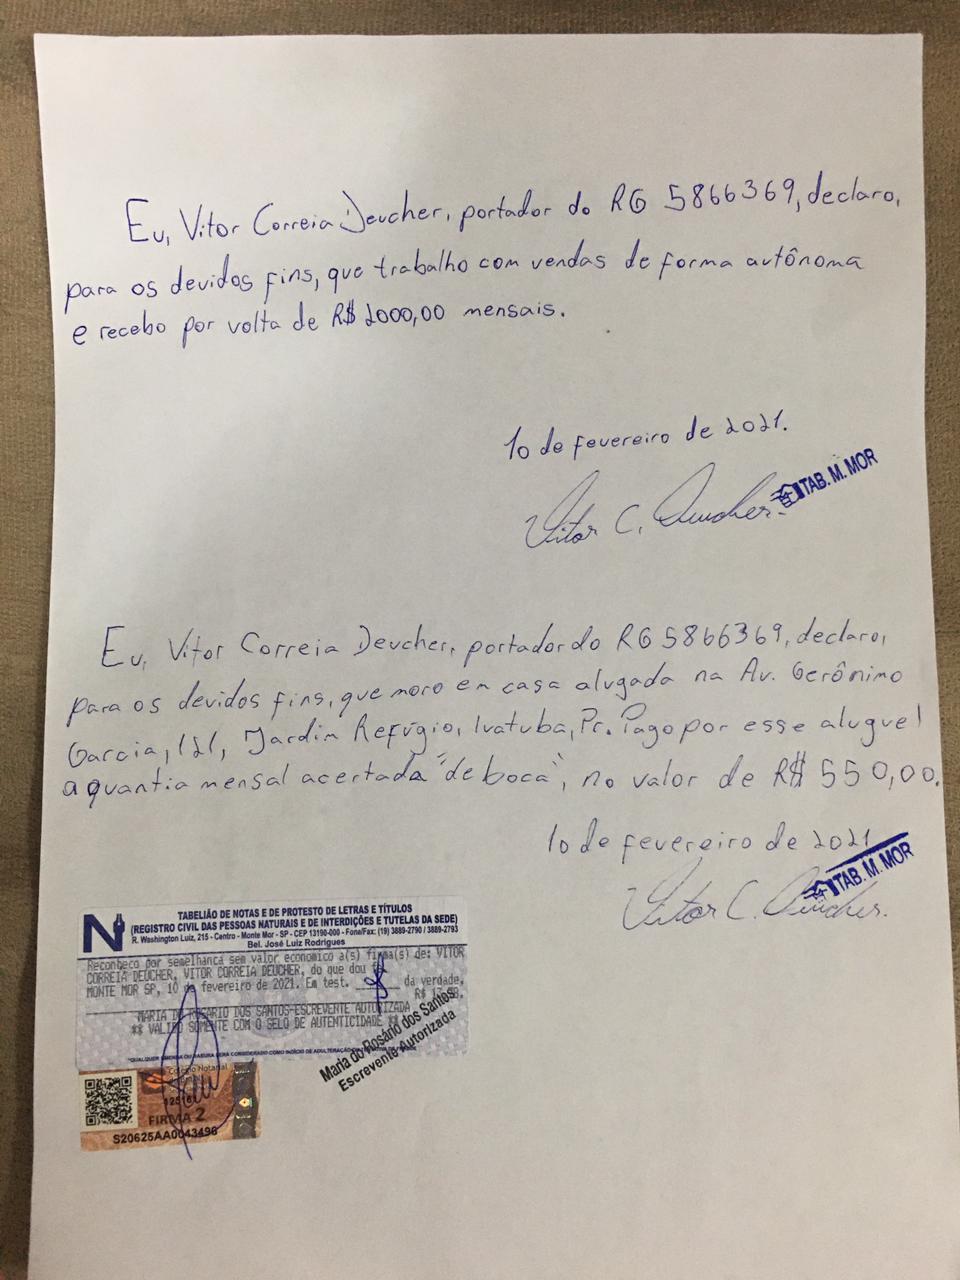 Eu, Vitor Correia Deucher, portador do RG 5866369, declaro,
para os devidos fins, que trabalho com vendas de forma autônoma
e recebo por volta de R$ 2000,00 mensais.
10 de fevereiro de 2021.
Vitor C. Deucher.
TAB. M. MOR
Eu, Vitor Correia Deucher, portador do RG 5866369, declaro,
para os devidos fins, que moro em casa alugada na Av. Gerônimo
Garcia, 121, Jardim Refúgio, Ivatuba, Pr. Pago por esse aluguel
a quantia mensal acertada "de boca", no valor de R$ 550,00.
10 de fevereiro de 2021
TAB. M. MOR
Vitor C. Deucher.
N
TABELIÃO DE NOTAS E DE PROTESTO DE LETRAS E TÍTULOS
(REGISTRO CIVIL DAS PESSOAS NATURAIS E DE INTERDIÇÕES E TUTELAS DA SEDE)
R. Washington Luiz, 215 - Centro - Monte Mor - SP - CEP 13190-000 - Fone/Fax: (19) 3889-2790 / 3889-2793
Bel. José Luiz Rodrigues
Reconheço por semelhança sem valor economico a(s) firma(s) de: VITOR
CORREIA DEUCHER, VITOR CORREIA DEUCHER, do que dou
MONTE MOR SP, 10 de fevereiro de 2021. Em test. da verdade.
R$
MARIA DO ROSARIO DOS SANTOS-ESCREVENTE AUTORIZADA
** VALIDO SOMENTE COM O SELO DE AUTENTICIDADE **
Maria do Rosário dos Santos
Escrevente Autorizada
Colégio Notarial
FIRMA 2
S20625AA0043496